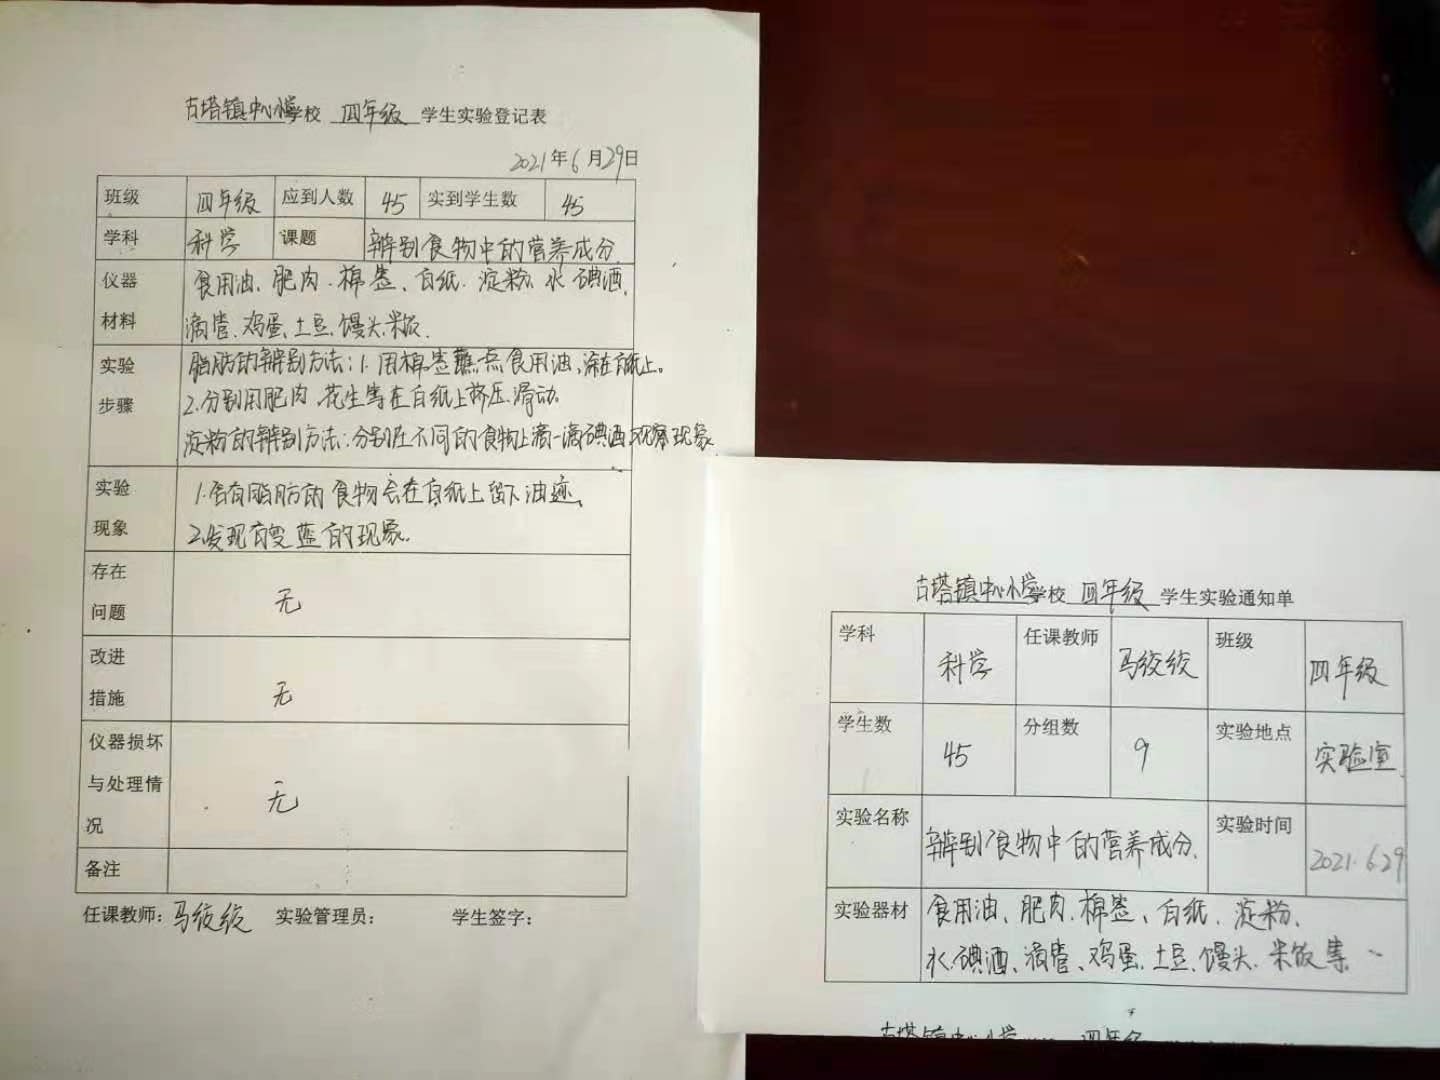 古塔镇中心小学学校 四年级 学生实验登记表
2021年6月29日
班级 四年级 应到人数 45 实到学生数 45
学科 科学 课题 辨别食物中的营养成分
仪器材料 食用油、肥肉、棉签、白纸、淀粉、水、碘酒、
滴管、鸡蛋、土豆、馒头、米饭.
实验步骤 脂肪的辨别方法:1.用棉签蘸点食用油,涂在白纸上。
2.分别用肥肉、花生等在白纸上挤压、滑动.
淀粉的辨别方法:分别在不同的食物上滴一滴碘酒,观察现象
实验现象 1.含有脂肪的食物会在白纸上留下油迹。
2.发现有变蓝的现象.
存在问题 无
改进措施 无
仪器损坏与处理情况 无
备注
任课教师:马绞绞 实验管理员: 学生签字:
古塔镇中心小学学校 四年级 学生实验通知单
学科 科学 任课教师 马绞绞 班级 四年级
学生数 45 分组数 9 实验地点 实验室.
实验名称 辨别食物中的营养成分. 实验时间 2021.6.29
实验器材 食用油、肥肉、棉签、白纸、淀粉、
水、碘酒、滴管、鸡蛋、土豆、馒头、米饭等.
古塔镇中心小学 四年级